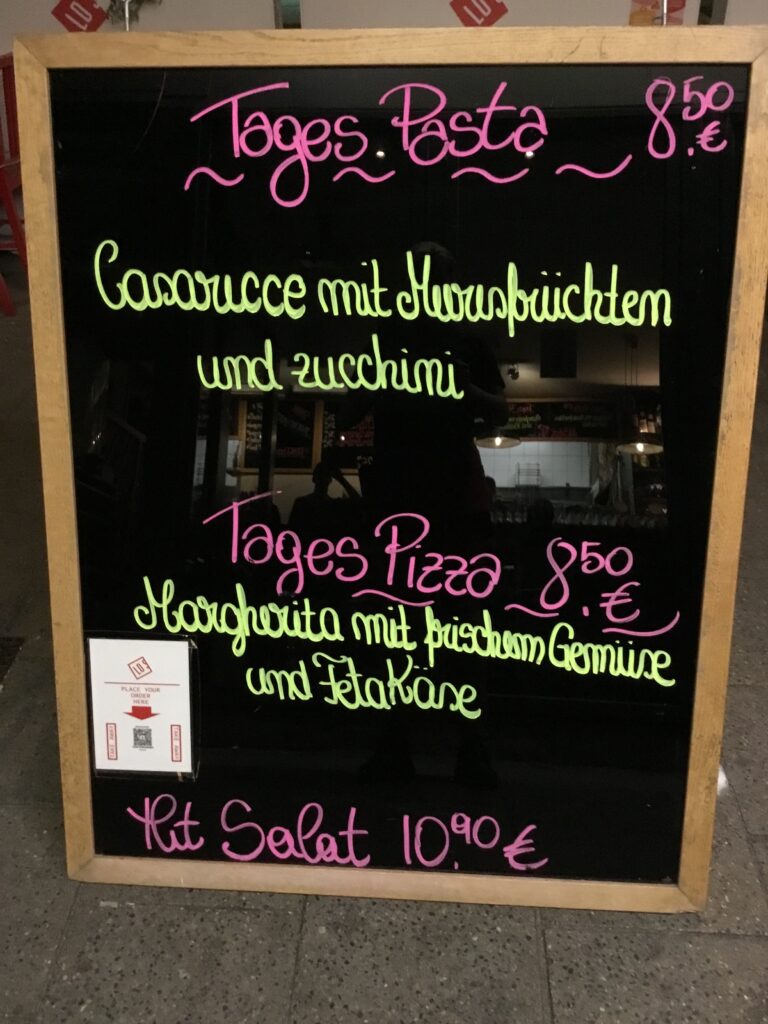 Tages Pasta 8.50 €
Casarucce mit Meeresfrüchten
und zucchini
Tages Pizza 8.50 €
Margherita mit frischem Gemüse
und FetaKäse
PLACE YOUR
ORDER
HERE
Hit Salat 10.90 €